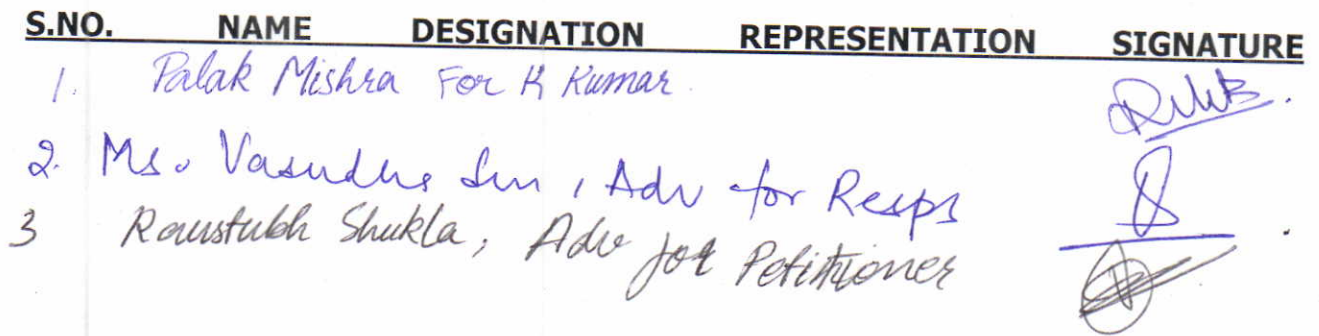 S.NO. NAME DESIGNATION REPRESENTATION SIGNATURE
1. Palak Mishra For K Kumar.
2. Ms. Vasudha Sen, Adv for Resps
3 Kaustubh Shukla, Adv for Petitioner